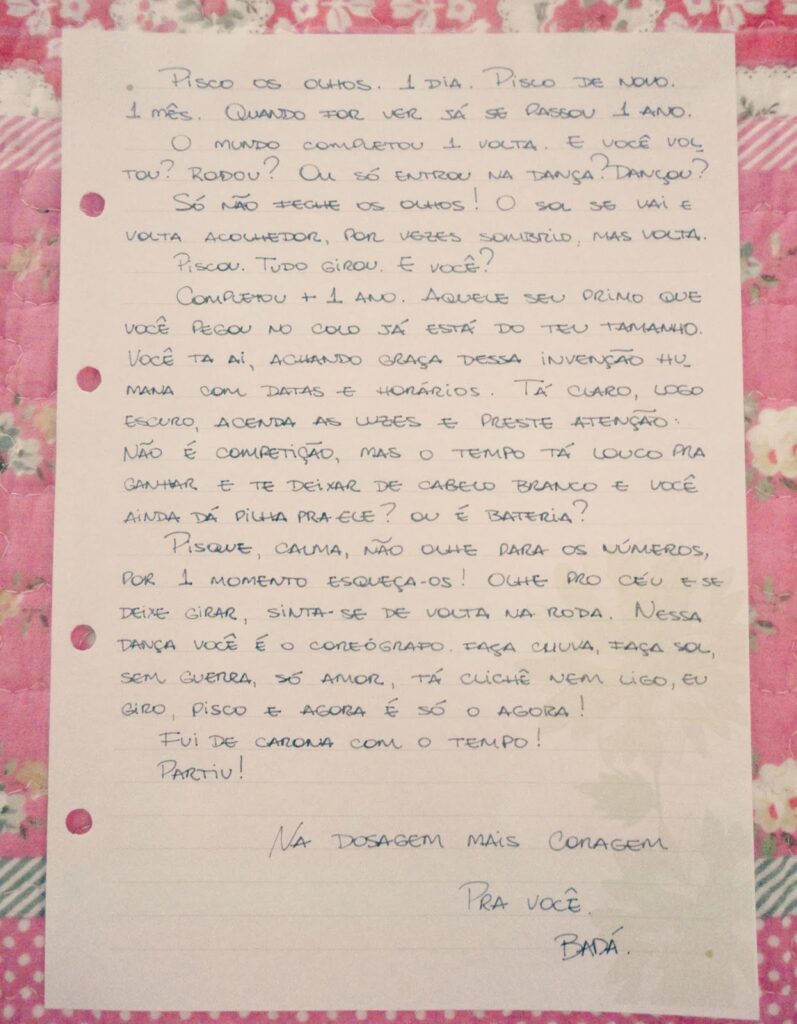 Pisco os olhos. 1 dia. Pisco de novo.
1 mês. Quando for ver já se passou 1 ano.
O mundo completou 1 volta. E você vol-
tou? Rodou? Ou só entrou na dança? Dançou?
Só não feche os olhos! O sol se vai e
volta acolhedor, por vezes sombrio, mas volta.
Piscou. Tudo girou. E você?
Completou + 1 ano. Aquele seu primo que
você pegou no colo já está do teu tamanho.
Você ta aí, achando graça dessa invenção hu-
mana com datas e horários. Tá claro, logo
escuro, acenda as luzes e preste atenção:
não é competição, mas o tempo tá louco pra
ganhar e te deixar de cabelo branco e você
ainda dá pilha pra ele? Ou é bateria?
Pisque, calma, não olhe para os números,
por 1 momento esqueça-os! Olhe pro céu e se
deixe girar, sinta-se de volta na roda. Nessa
dança você é o coreógrafo. Faça chuva, faça sol,
sem guerra, só amor, tá clichê nem ligo, eu
giro, pisco e agora é só o agora!
Fui de carona com o tempo!
Partiu!
Na dosagem mais coragem
Pra você.
Badá.